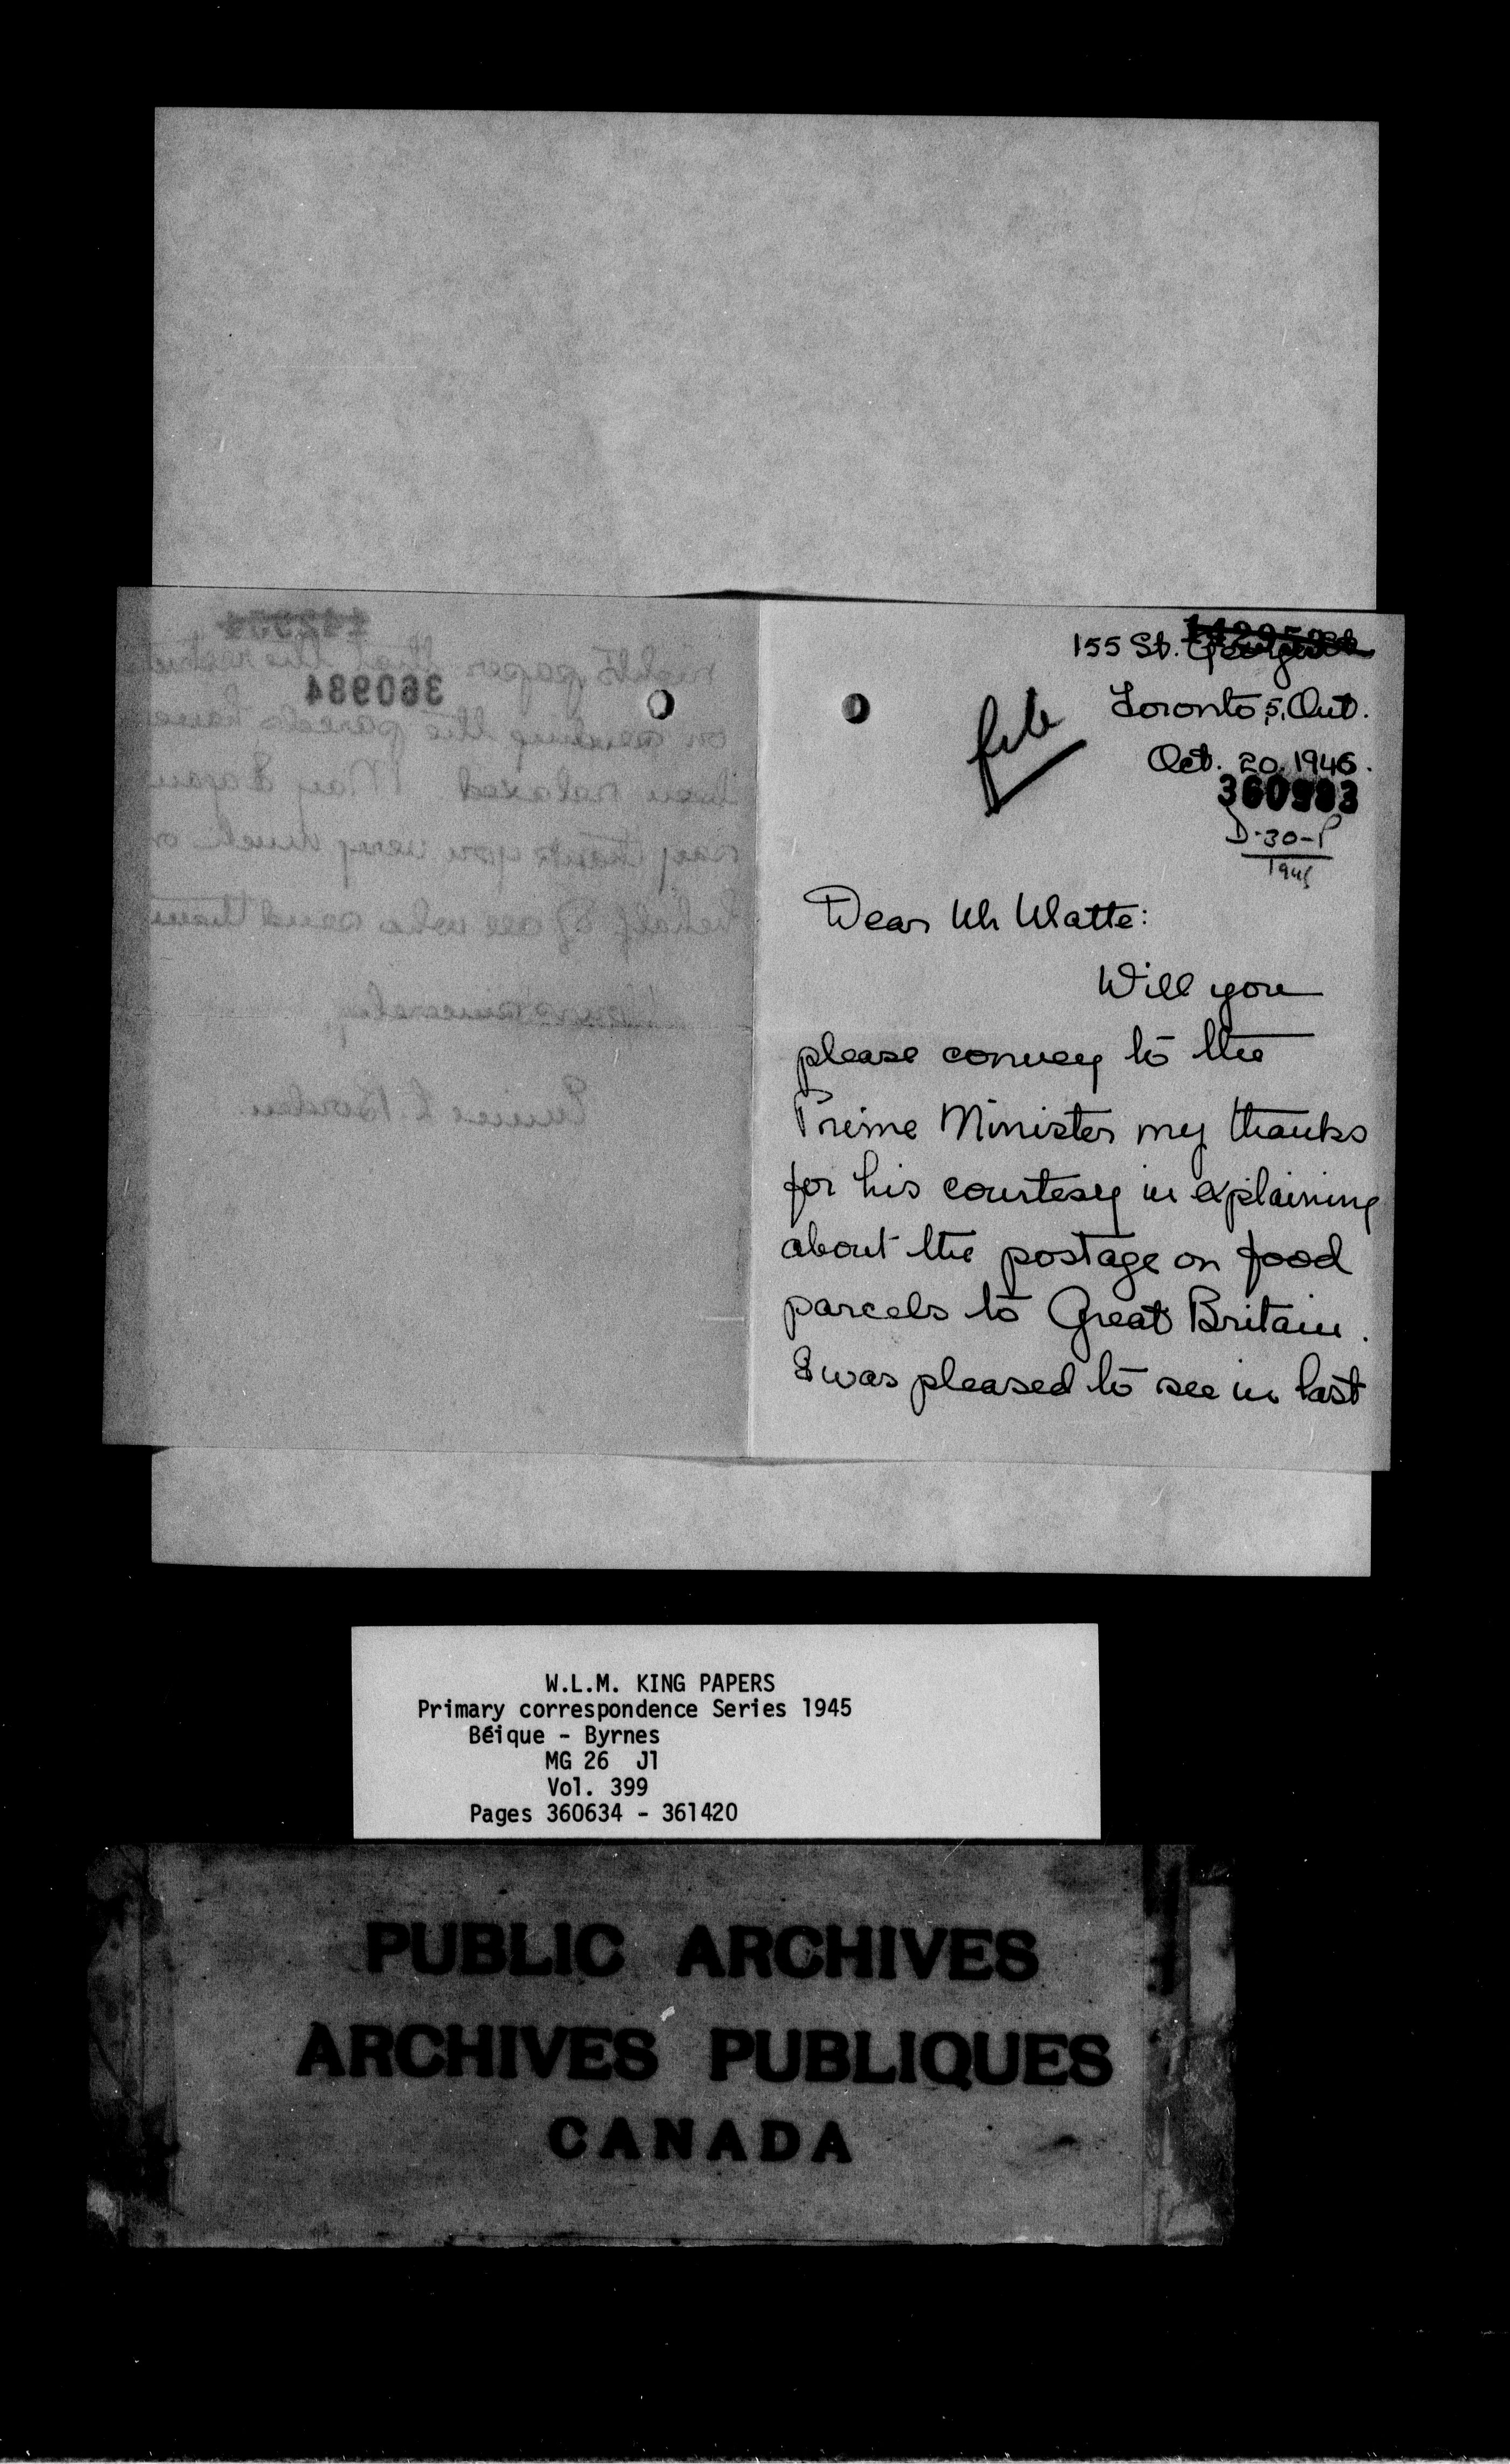 142953
155 St. George St.
Toronto 5, Ont.
file
Oct. 20. 1945.
360983
D-30-P
1945
Dear Mr Matte:
Will you
please convey to the
Prime Minister my thanks
for his courtesy in explaining
about the postage on food
parcels to Great Britain.
I was pleased to see in last
360984
night's paper that the
on sending the parcels have
been relaxed. May I again
say thank you very much on
behalf of all who send them
Yours sincerely
L. Borden
W.L.M. KING PAPERS
Primary correspondence Series 1945
Béique - Byrnes
MG 26 J1
Vol. 399
Pages 360634 - 361420
PUBLIC ARCHIVES
ARCHIVES PUBLIQUES
CANADA